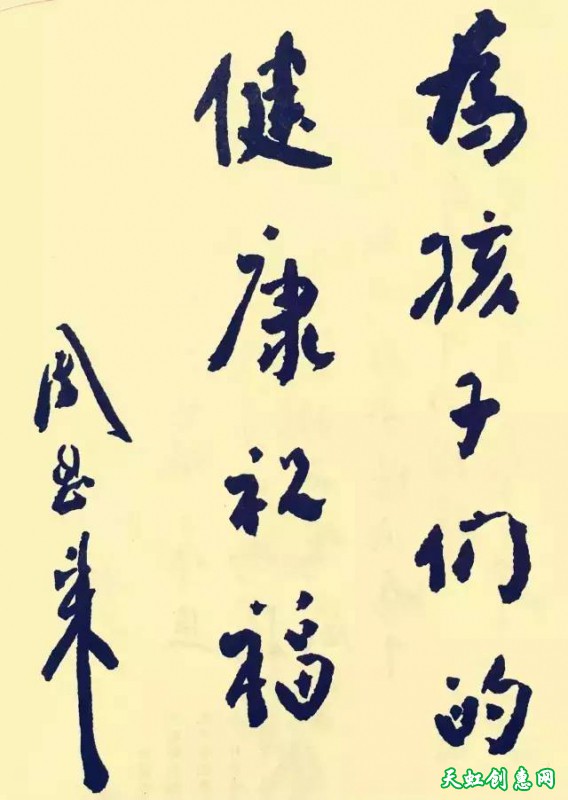 为孩子们的
健康祝福
周恩来
天虹创惠网